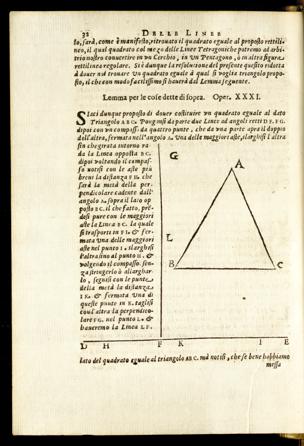 32 DELLE LINEE
to, sarà, come è manifesto, ritrouato il quadrato eguale al proposto rettili-
neo, il qual quadrato col mezo delle Linee Tetragoniche potremo al arbi-
trio nostro conuertire in un Cerchio, in un Pentagono, o in altra figura
rettilinea regolare. Si è dunque la resolutione del presente quesito ridotta
à douer noi trouare un quadrato eguale à qual si voglia triangolo propo-
sto, il che con modo facilissimo si hauerà dal Lemma seguente.
Lemma per le cose dette di sopra. Oper. XXXI.
SIaci dunque proposto di douer costituire un quadrato eguale al dato
Triangolo ABC. Pongansi da parte due Linee ad angoli retti DE. FG.
dipoi con un compasso da quattro punte, che da una parte apra il doppio
dell'altra, fermata nell'angolo A. Vna delle maggiori aste, slarghisi l'altra
sin che girata intorno ra-
da la Linea opposta BC.
dipoi voltando il compas-
so notisi con le aste più
breui la distanza FH. che
sarà la metà della per-
pendicolare cadente dall'
angolo A. sopra il lato op-
posto BC. il che fatto, pré-
desi pure con le maggiori
aste la Linea BC. la quale
si trasporti in FI. & fer-
mata una delle maggiori
aste nel punto I. si slarghi
l'altra sino al punto H. &
volgendo il compasso sen-
za stringerlo ò allargar-
lo, segnisi con le punte
della metà la distanza
IK. & fermata una di
queste punte in K. taglisi
con l'altra la perpendico-
lare FG. nel punto L. &
haueremo la Linea LF.
G
A
L
B C
D H F K I E
lato del quadrato eguale al triangolo ABC. mà notisi, che se bene habbiamo
messa